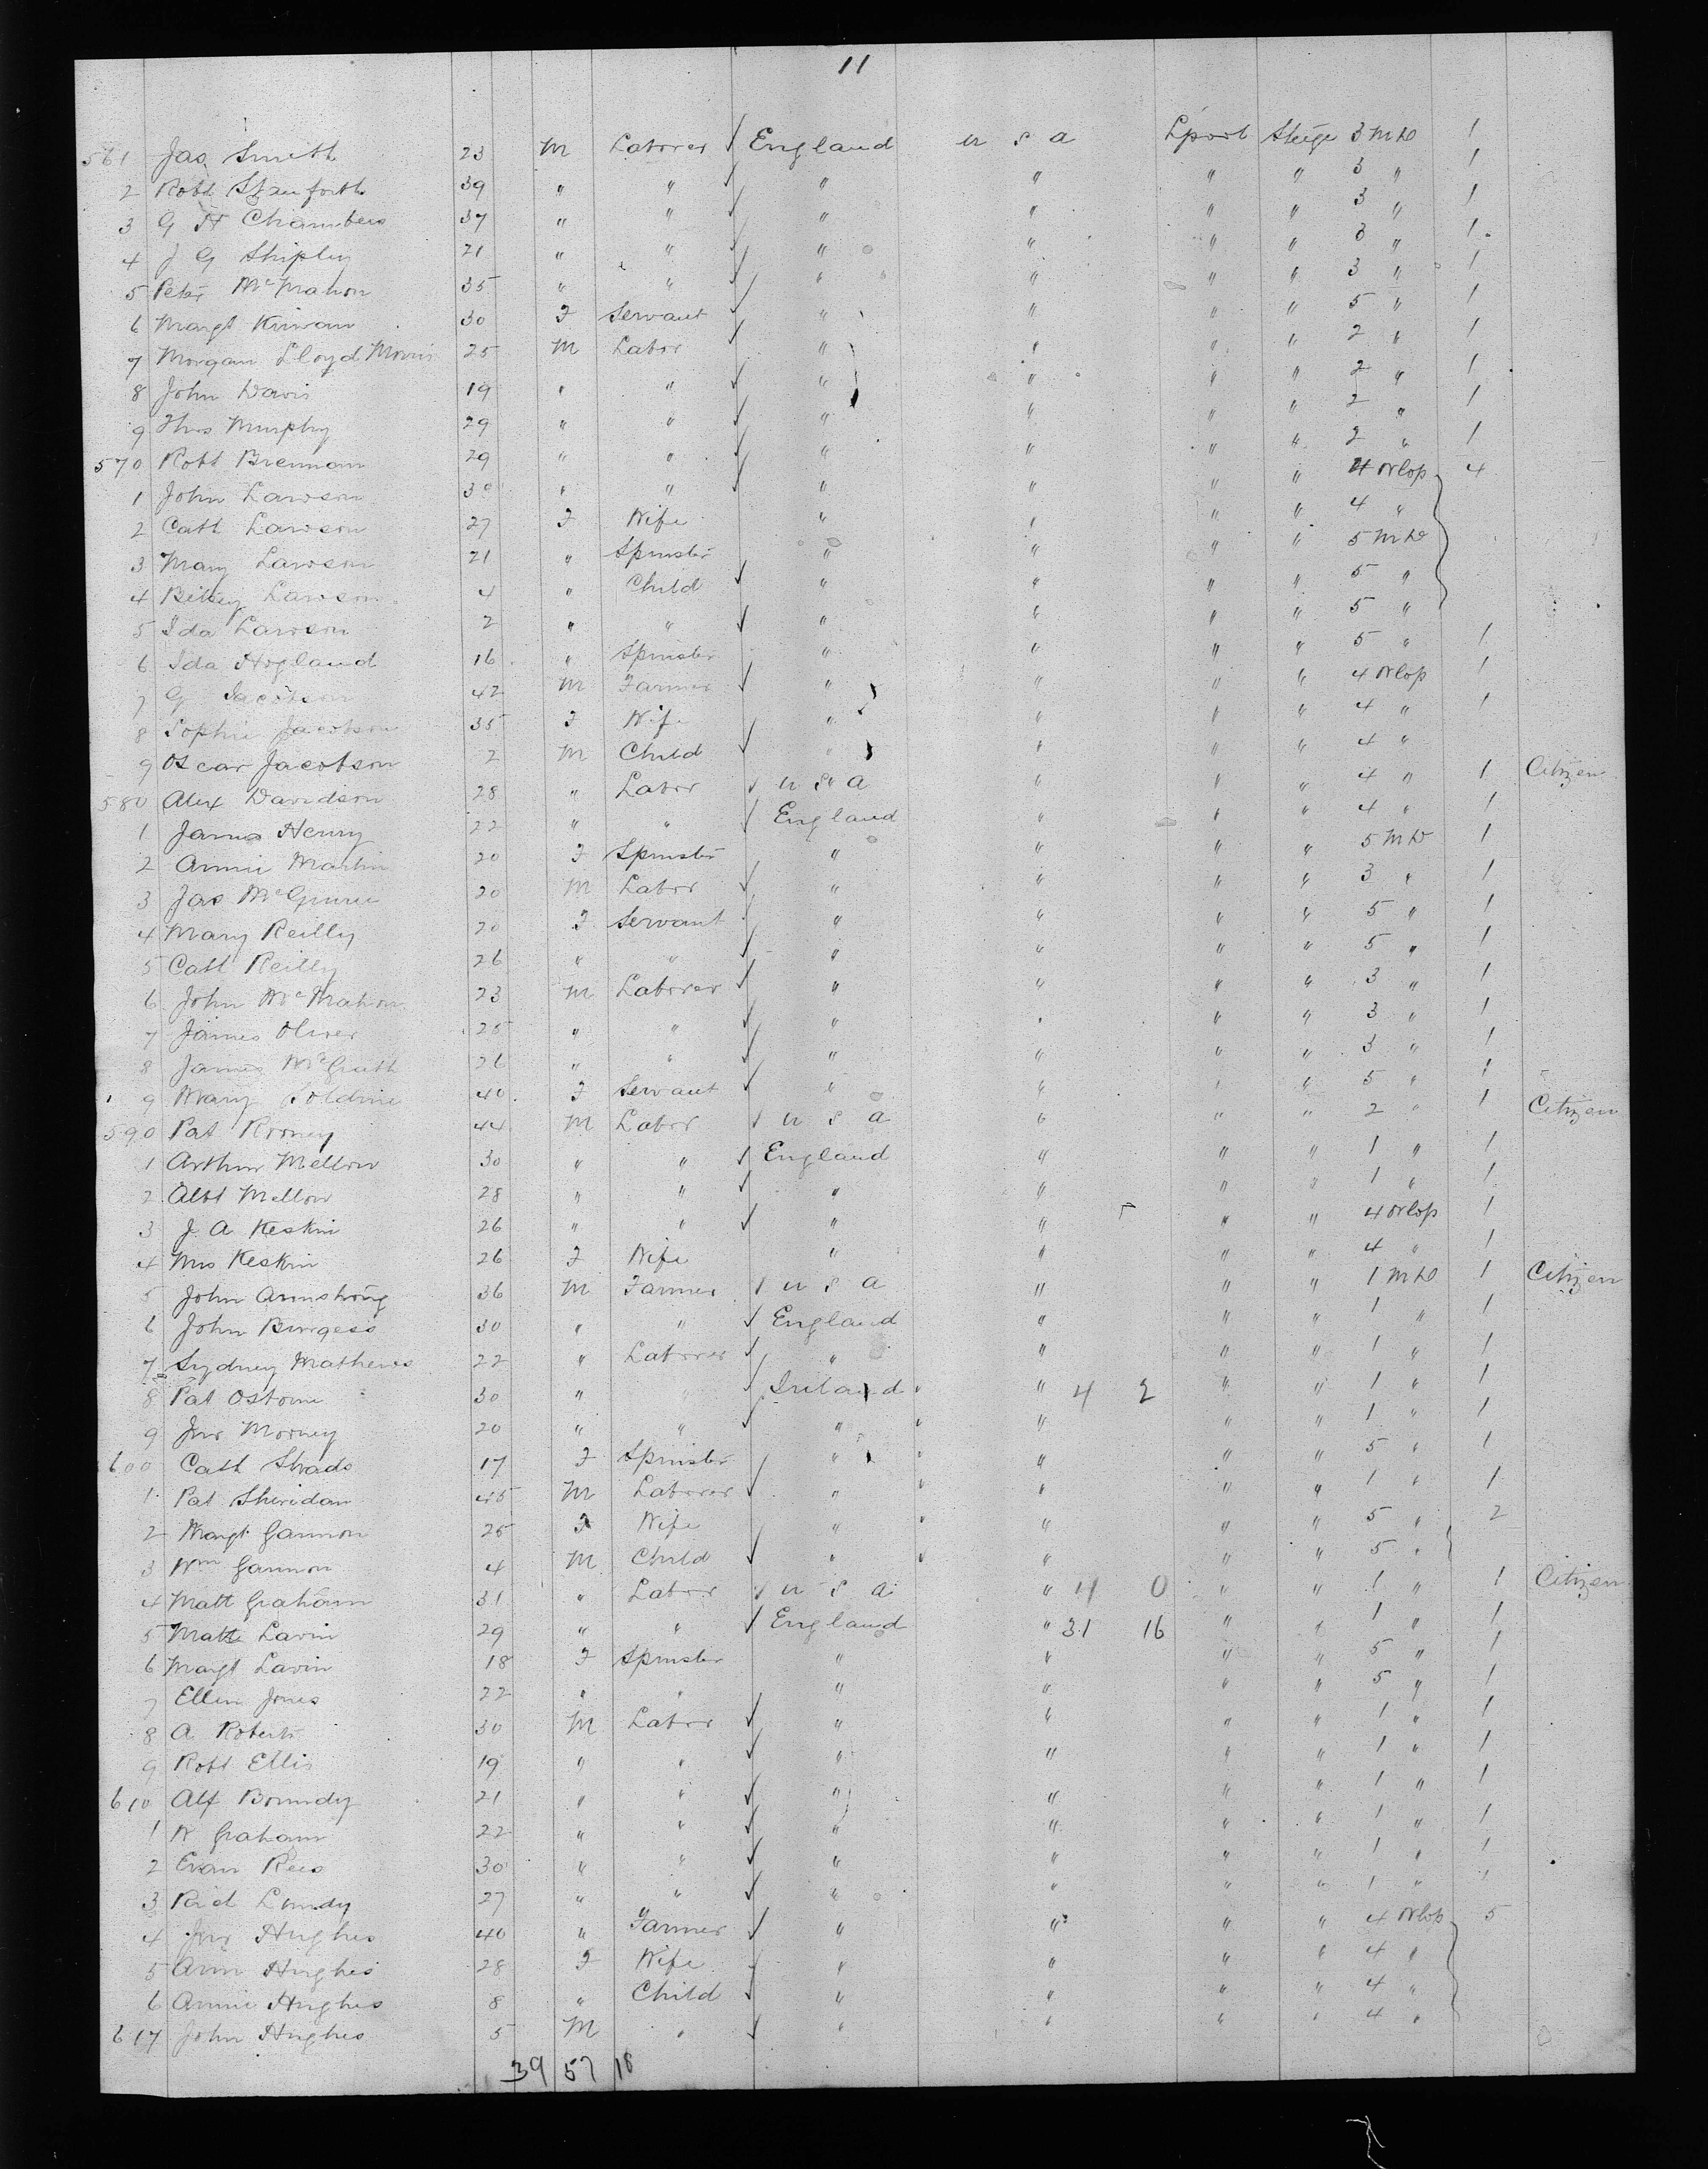 11
561 Jas Smith 23 M Laborer ✓ England U S A Lpool Steige 3 M D 1
2 Robt Stanforth 39 " " ✓ " " " " 3 " 1
3 G H Chambers 37 " " ✓ " " " " 3 " 1
4 J G Shipley 21 " " ✓ " " " " 3 " 1
5 Peter McMahon 35 " " ✓ " " " " 3 " 1
6 Margt Kirwan 30 F Servant ✓ " " " " 5 " 1
7 Morgan Lloyd Morris 25 M Labor ✓ " " " " 2 " 1
8 John Davis 19 " " ✓ " " " " 2 " 1
9 Thos Murphy 29 " " ✓ " " " " 2 " 1
570 Robt Brennan 29 " " ✓ " " " " 2 " 1
1 John Lawson 30 " " ✓ " " " " 4 Orlop 4
2 Cath Lawson 27 F Wife " " " " 4 "
3 Mary Lawson 21 " Spinster " " " " 5 M D
4 Betsey Lawson 4 " Child ✓ " " " " 5 "
5 Ida Lawson 2 " " ✓ " " " " 5 "
6 Ida Hogland 16 " Spinster " " " " 5 " 1
7 G Jacobson 42 M Farmer ✓ " " " " 4 Orlop 1
8 Sophie Jacobson 35 F Wife " " " " 4 " 1
9 Oscar Jacobson 2 M Child ✓ " " " " 4 "
580 Alex Davidson 28 " Labor ✓ U S A " " " 4 " 1 Citizen
1 James Henry 22 " " ✓ England " " " 4 " 1
2 Annie Martin 20 F Spinster " " " " 5 M D 1
3 Jas McGuire 20 M Labor ✓ " " " " 3 " 1
4 Mary Reilly 20 F Servant ✓ " " " " 5 " 1
5 Cath Reilly 26 " " ✓ " " " " 5 " 1
6 John McMahon 23 M Laborer ✓ " " " " 3 " 1
7 James Oliver 25 " " ✓ " " " " 3 " 1
8 James McGrath 26 " " ✓ " " " " 3 " 1
9 Mary Goldrine 40 F Servant ✓ " " " " 5 " 1
590 Pat Rooney 44 M Labor ✓ U S A " " " 2 " 1 Citizen
1 Arthur Mellow 30 " " ✓ England " " " 1 " 1
2 Albt Mellow 28 " " ✓ " " " " 1 " 1
3 J A Keskin 26 " " ✓ " " " " 4 Orlop 1
4 Mrs Keskin 26 F Wife " " " " 4 " 1
5 John Armstrong 36 M Farmer ✓ U S A " " " 1 M D 1 Citizen
6 John Burgess 30 " " ✓ England " " " 1 " 1
7 Sydney Mathews 22 " Laborer ✓ " " " " 1 " 1
8 Pat Osborne 30 " " ✓ Ireland " 4 2 " " 1 " 1
9 Jno Mooney 20 " " ✓ " " " " 1 " 1
600 Cath 17 F Spinster " " " " 5 " 1
1 Pat Sheridan 45 M Laborer ✓ " " " " 1 " 1
2 Margt Gannon 25 F Wife " " " " 5 " 2
3 Wm Gannon 4 M Child ✓ " " " " 5 "
4 Matt Graham 31 " Labor ✓ U S A " 4 0 " " 1 " 1 Citizen
5 Matt Lavin 29 " " ✓ England " 31 16 " " 1 " 1
6 Margt Lavin 18 F Spinster " " " " 5 " 1
7 Ellen Jones 22 " " " " " " 5 " 1
8 A Roberts 30 M Labor ✓ " " " " 1 " 1
9 Robt Ellis 19 " " ✓ " " " " 1 " 1
610 Alf 21 " " ✓ " " " " 1 " 1
1 W Graham 22 " " ✓ " " " " 1 " 1
2 Evan Rees 30 " " ✓ " " " " 1 " 1
3 Rich Lundy 27 " " ✓ " " " " 1 " 1
4 Jno Hughes 40 " Farmer ✓ " " " " 4 Orlop 5
5 Ann Hughes 28 F Wife " " " " 4 "
6 Annie Hughes 8 " Child ✓ " " " " 4 "
617 John Hughes 5 M " ✓ " " " " 4 "
39 57 18